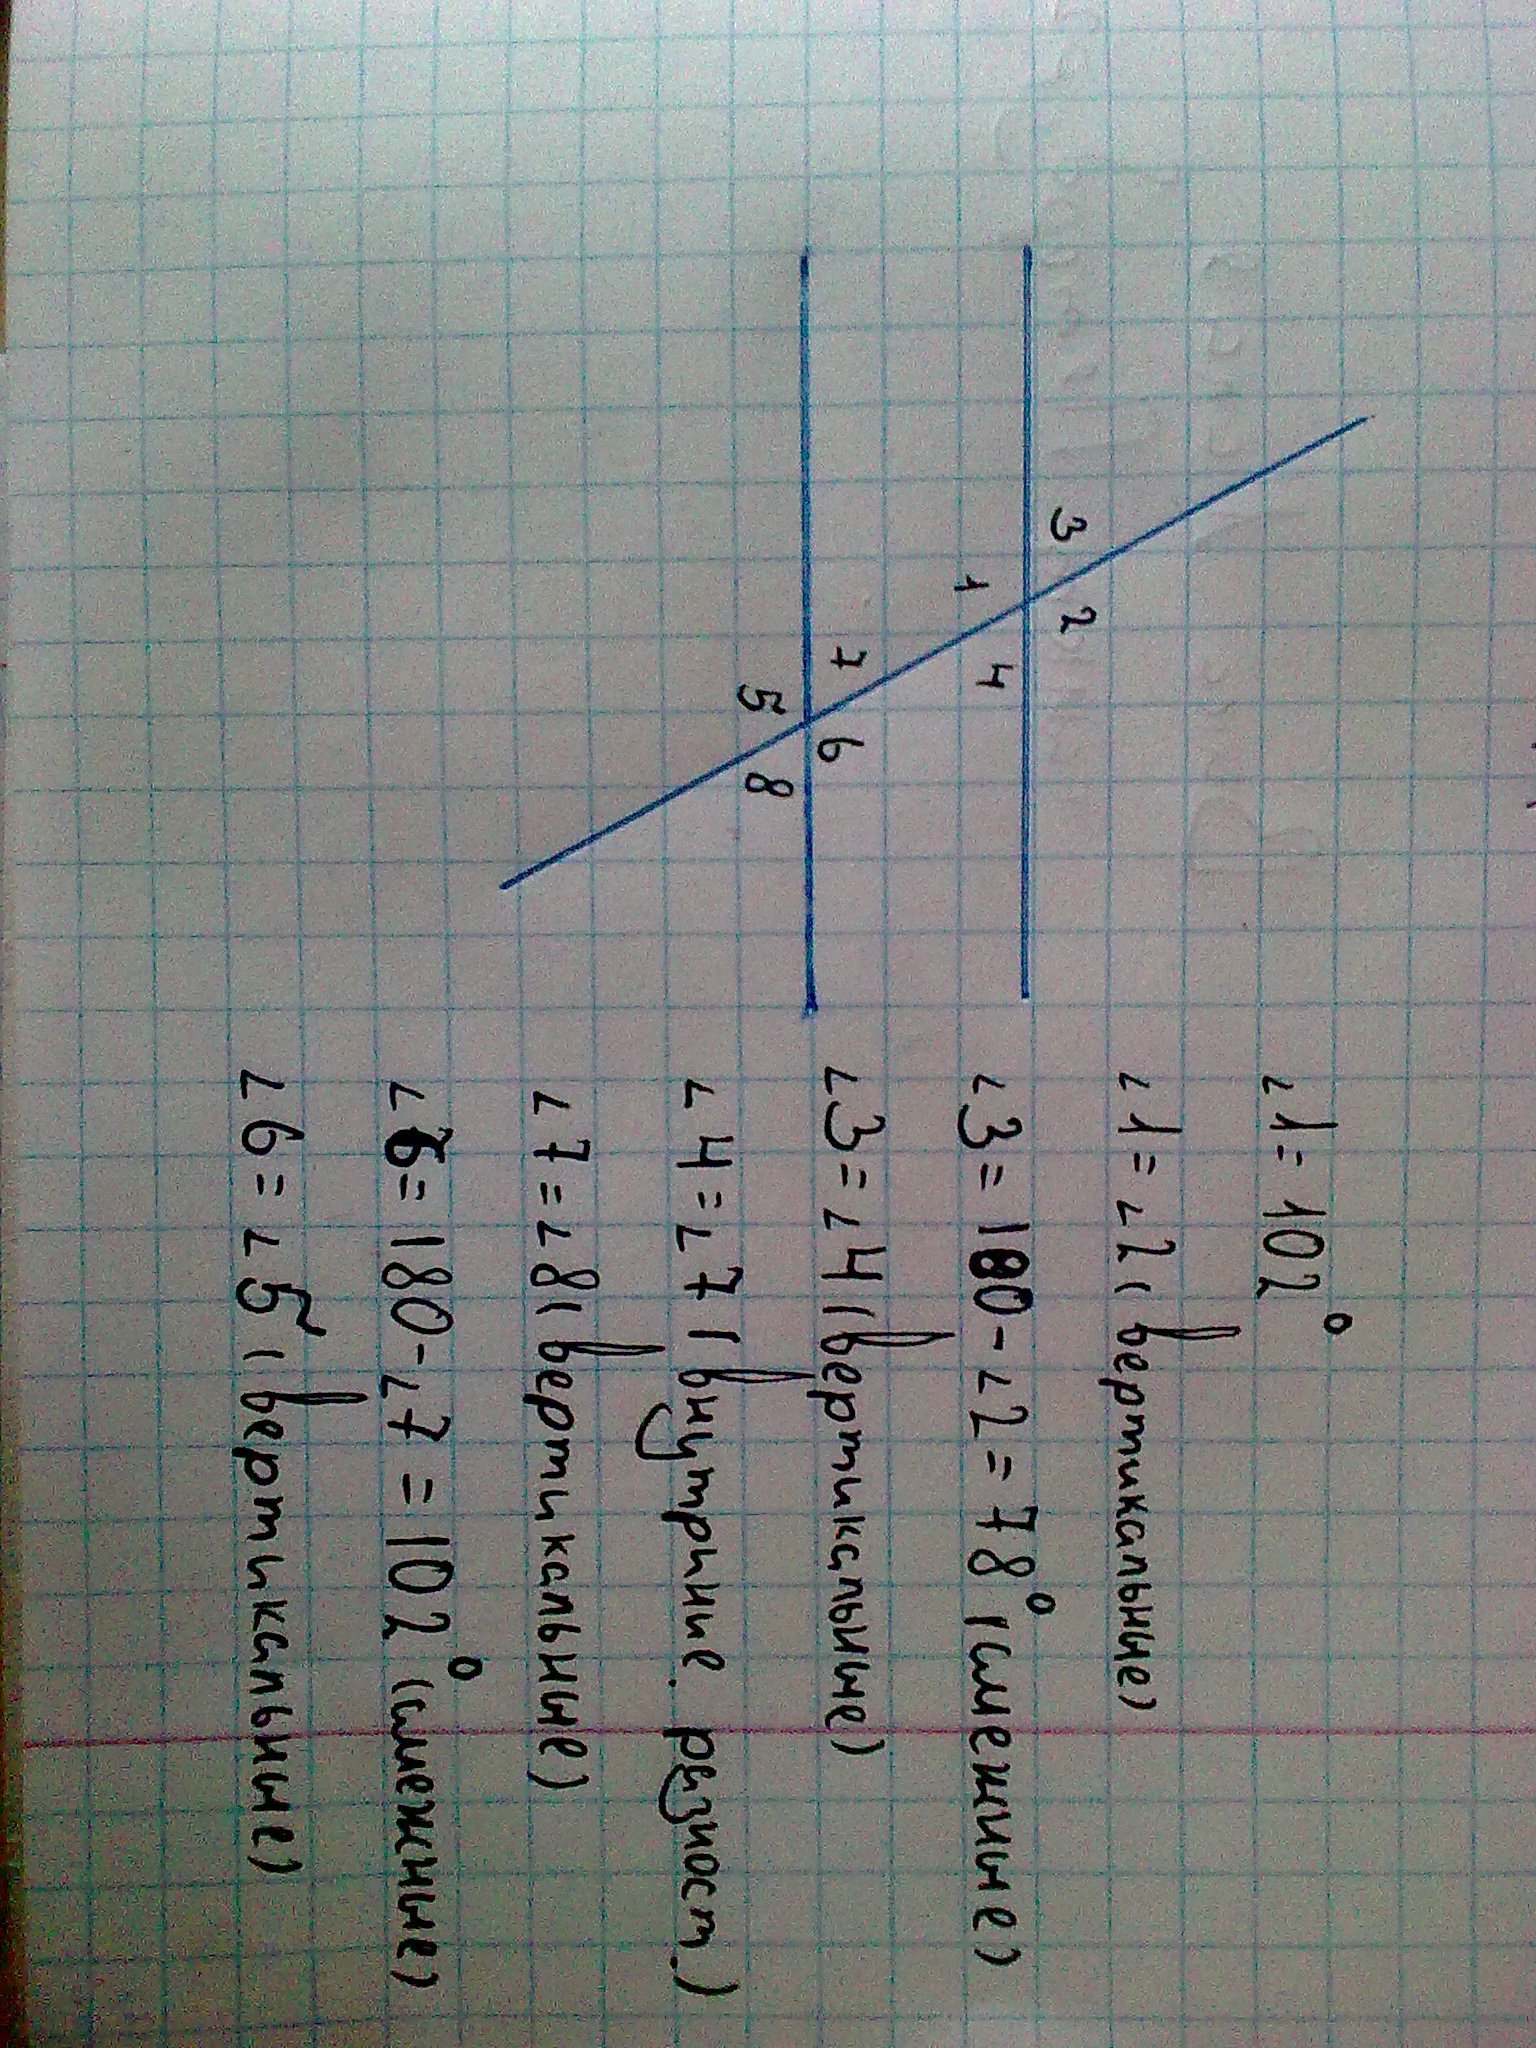 3 2
1 4
7 6
5 8
∠1=102°
∠1=∠2 (вертикальные)
∠3=180-∠2=78° (смежные)
∠3=∠4 (вертикальные)
∠4=∠7 (внутрние. разност.)
∠7=∠8 (вертикальные)
∠6=180-∠7=102° (смежные)
∠6=∠5 (вертикальные)